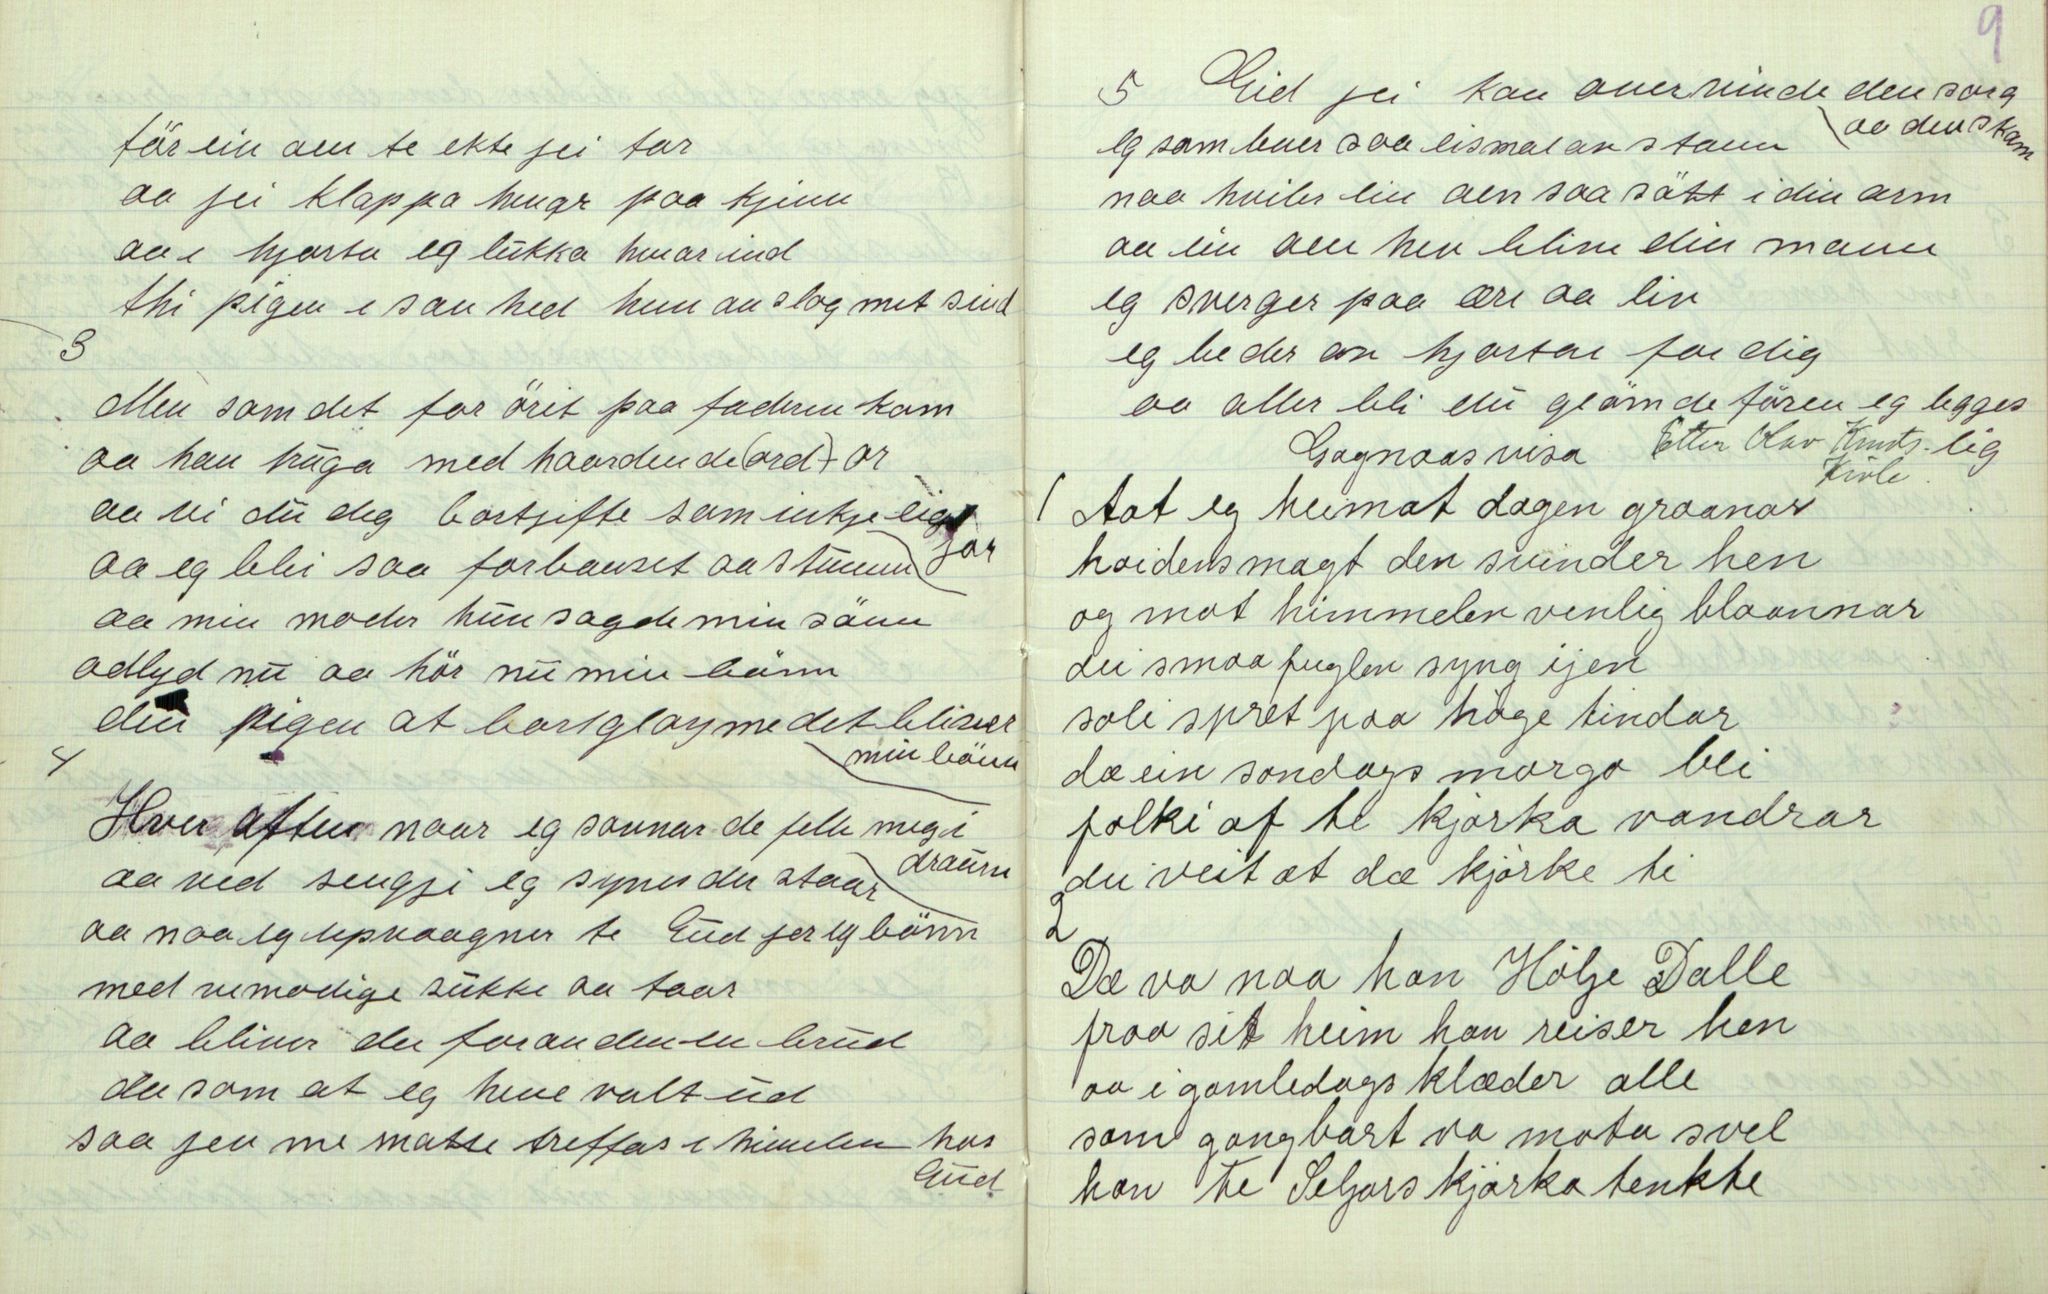 för ein aen te ekte jei tar
aa jei klappa hengr paa kjinn
aa i hjarta eg lükka hennar ind
thi pigen i sanhed hun an slog met sind
3
Men som det for örit paa faderen kom
aa han trüga med haardende (ord) or
aa vi dü deg bortjifte som inkje eig
jor
aa eg blei saa forbauset aa stümm
aa min moder hün sagde min sönn
adlyd nü aa hör nü min bönn
den pigen at bortgløyme det bliver
min bönn
4
Hver aften naar eg sovnar de felle meg i
draüm
aa ved sengji eg synes du staar
aa naa eg upvaagner te Güd jer eg bönn
med vemodige sükke aa taar
aa bliver du for anden en brüd
du som at eg heve valt üd
saa jen me matte treffas i himelen hos
Güd
9
5 Gid jei kan overvinde den sorg
aa den skam
eg som lever saa eismal av stann
naa hviler ein aen saa sött i din arm
aa ein aen hev blive din mann
eg sverger paa ære aa liv
eg beder av hjartæ for dig
aa aller bli dü glömde fören eg legges
lig
Gagnaas visa Etter Olav Knuts-
Kivle.
1 Aat eg heimat dagen graanar
hoidensmagt den svinder hen
og mot himmelen venlig blaannar
dei smaa fuglen syng ijen
sole spret paa höge tindar
dæ ein sondags morgo blei
folki af te kjørka vandrar
dei veit at dæ kjørke ti
2
Dæ va naa han Hølje Dalle
fraa sit heim han reiser hen
aa i gamledags klæder alle
som gangbart va mota svel
han te Seljors kjørka tenkte